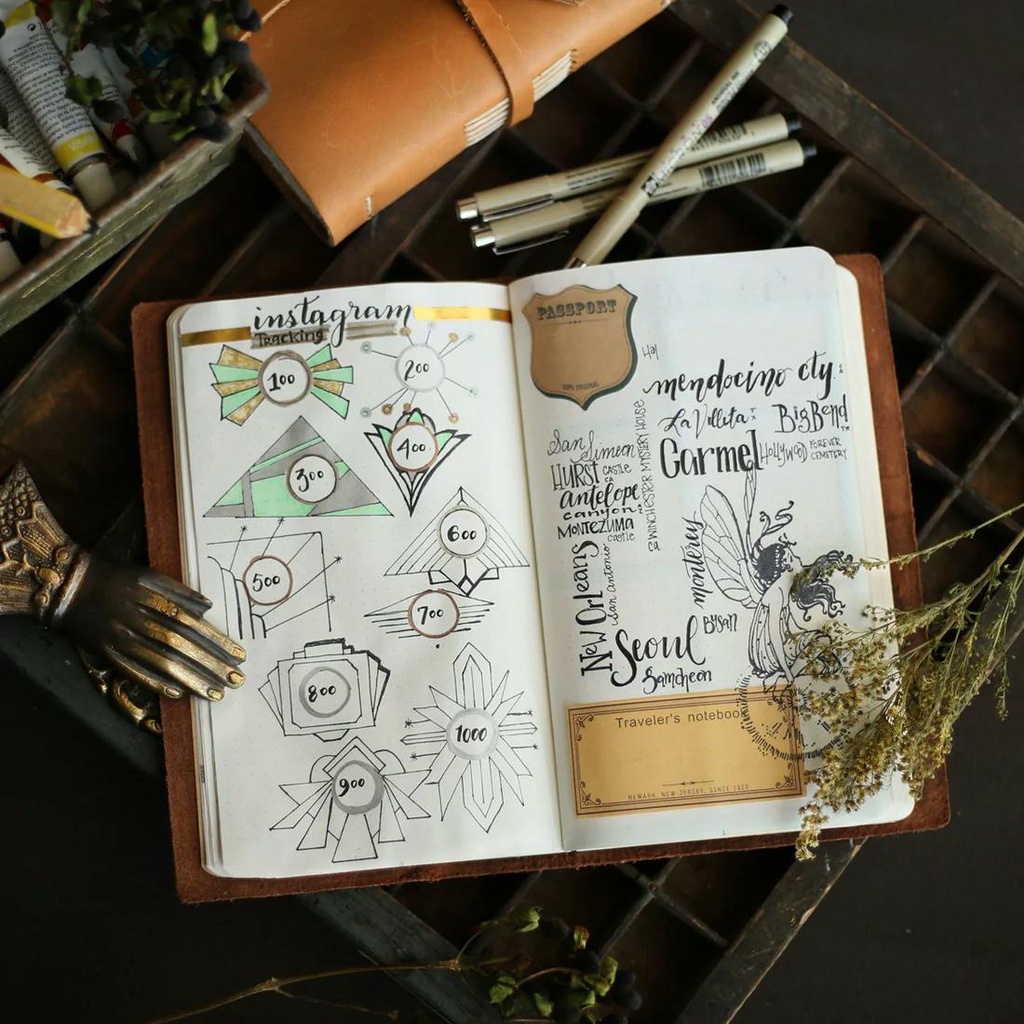 instagram
Tracking
100
200
300
400
500
600
700
800
900
1000
PASSPORT
mendocino cty.
La Villita
Big Bend
Carmel
Hollywood
FOREVER
CEMETERY
San Simeon
HURST
CASTLE
CA
antelope
canyon
MONTEZUMA
castle
CA WINCHESTER MYSTERY HOUSE
New Orleans
San Antonio
monterey
Seoul
Busan
Samcheon
Traveler's notebook
NEWARK, NEW JERSEY, SINCE 1920